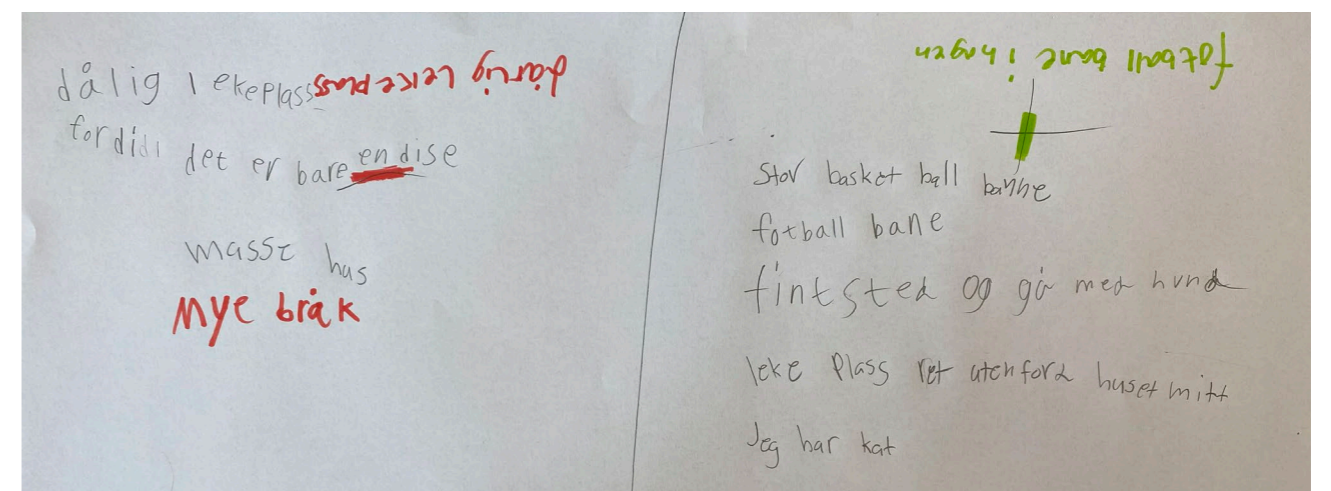 dålig lekeplass
dårlig leke plass
fordidi det er bare en dise
masse hus
Mye bråk
fotball bane i hagen
Stor basket ball banne
fotball bane
fint sted og gå med hund
leke plass ret utenford huset mitt
Jeg har kat